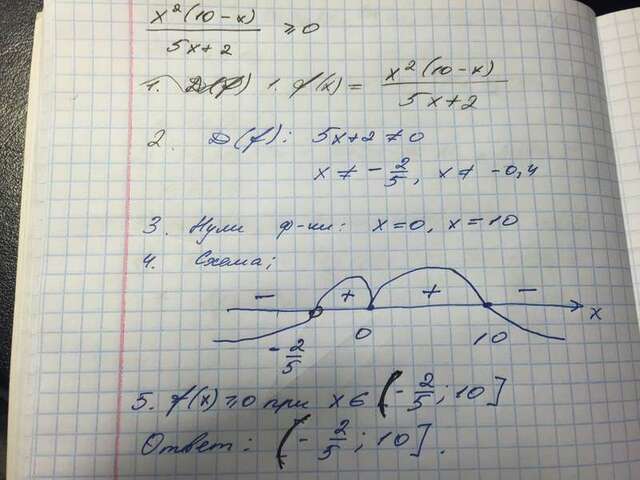 x²(10-x)/(5x+2) ≥ 0
1. f(x) = x²(10-x)/(5x+2)
2. D(f): 5x+2 ≠ 0
x ≠ -2/5, x ≠ -0,4
3. Нули ф-ии: x=0, x=10
4. Схема:
- + + - x
-2/5 0 10
5. f(x) ≥ 0 при x ∈ (-2/5; 10]
Ответ: (-2/5; 10].